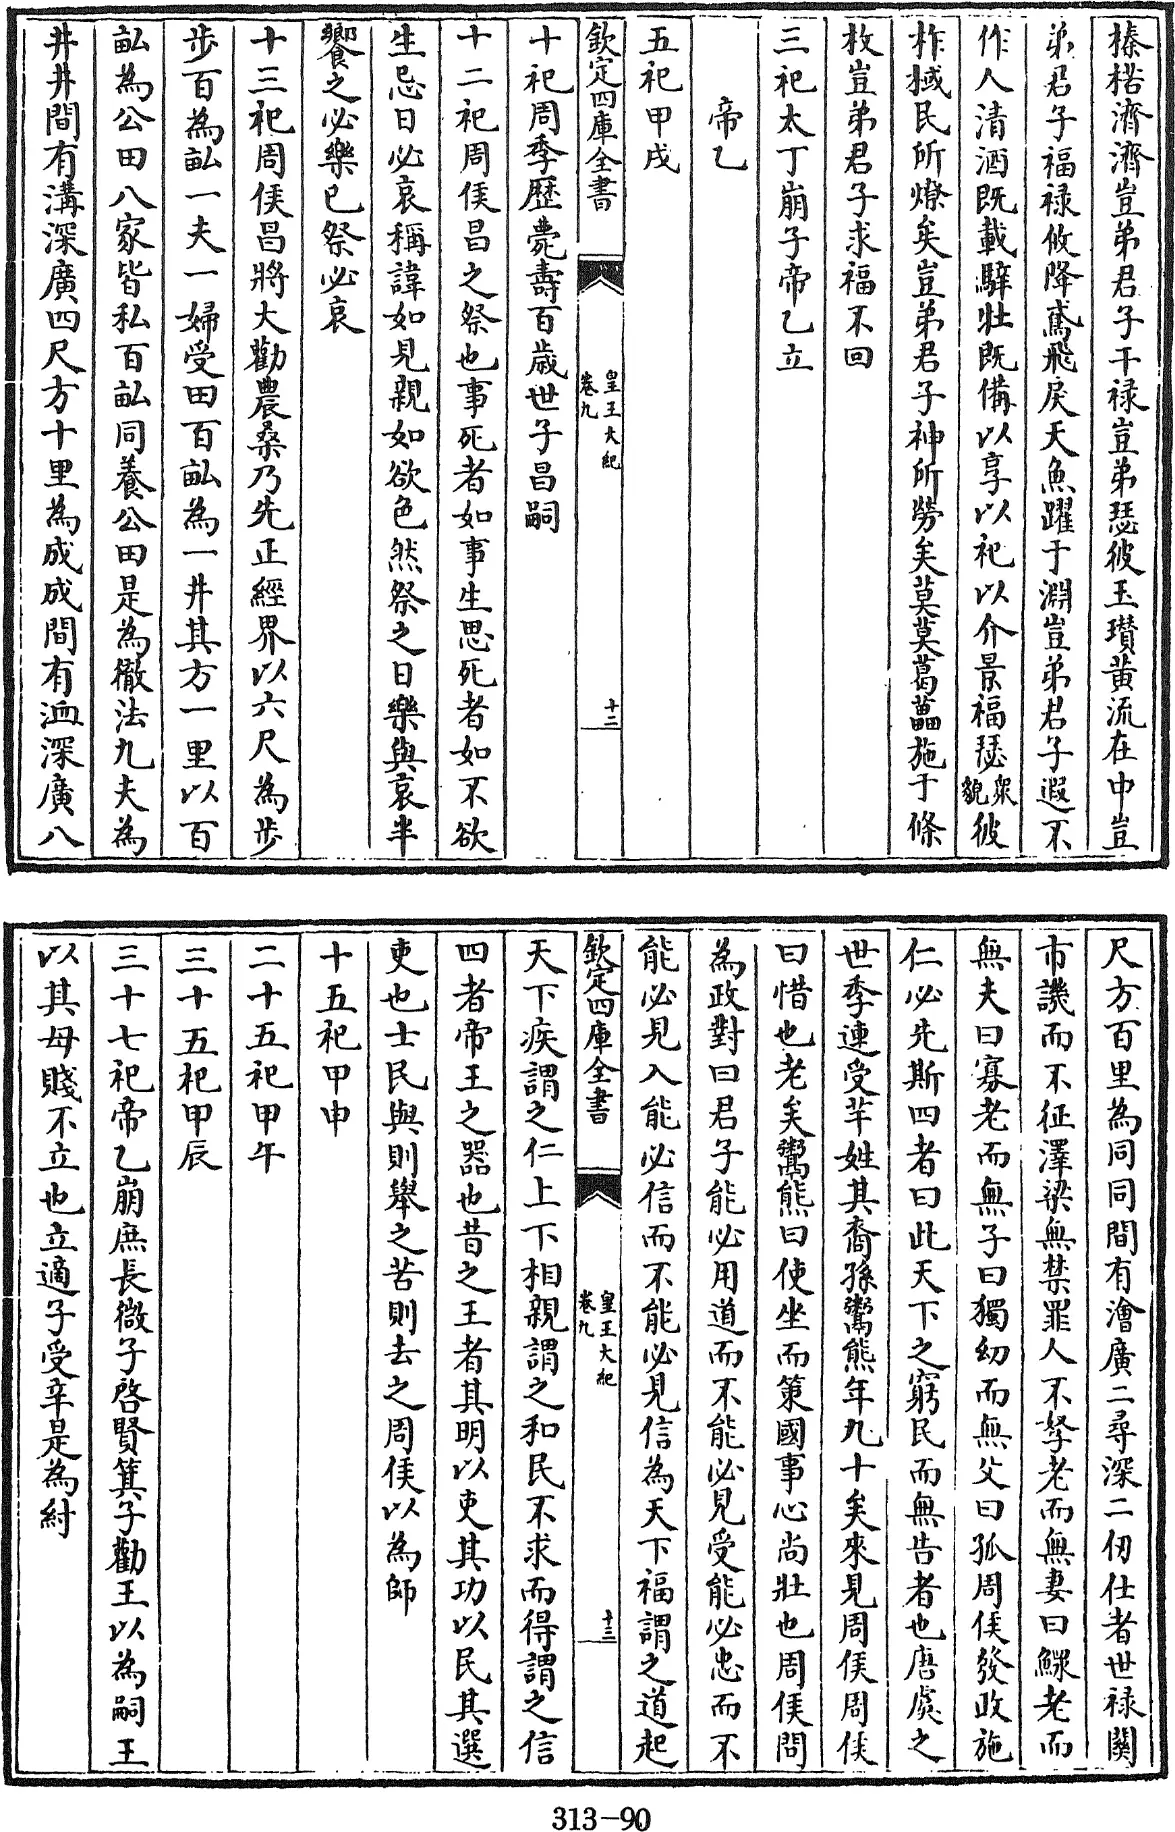 榛楛濟濟豈弟君子干禄豈弟瑟彼玉瓚黄流在中豈
弟君子福禄攸降鳶飛戾天魚躍于淵豈弟君子遐不
作人清酒既載騂牡既備以享以祀以介景福瑟衆貌彼
柞棫民所燎矣豈弟君子神所勞矣莫莫葛藟施于條
枚豈弟君子求福不回
三祀太丁崩子帝乙立
帝乙
五祀甲戌
欽定四庫全書
皇王大紀
卷九
十二
十祀周季歷薨壽百歳世子昌嗣
十二祀周侯昌之祭也事死者如事生思死者如不欲
生忌日必哀稱諱如見親如欲色然祭之日樂與哀半
饗之必樂已祭必哀
十三祀周侯昌將大勸農桑乃先正經界以六尺為步
步百為畝一夫一婦受田百畝為一井其方一里以百
畝為公田八家皆私百畝同養公田是為徹法九夫為
井井間有溝深廣四尺方十里為成成間有洫深廣八
尺方百里為同同間有澮廣二尋深二仞仕者世禄關
市譏而不征澤梁無禁罪人不孥老而無妻曰鰥老而
無夫曰寡老而無子曰獨幼而無父曰孤周侯發政施
仁必先斯四者曰此天下之窮民而無告者也唐虞之
世季連受羋姓其裔孫鬻熊年九十矣來見周侯周侯
曰惜也老矣鬻熊曰使坐而策國事心尚壯也周侯問
為政對曰君子能必用道而不能必見受能必忠而不
能必見入能必信而不能必見信為天下福謂之道起
欽定四庫全書
皇王大紀
卷九
十三
天下疾謂之仁上下相親謂之和民不求而得謂之信
四者帝王之器也昔之王者其明以吏其功以民其選
吏也士民與則舉之苦則去之周侯以為師
十五祀甲申
二十五祀甲午
三十五祀甲辰
三十七祀帝乙崩庶長微子啓賢箕子勸王以為嗣王
以其母賤不立也立適子受辛是為紂
313-90